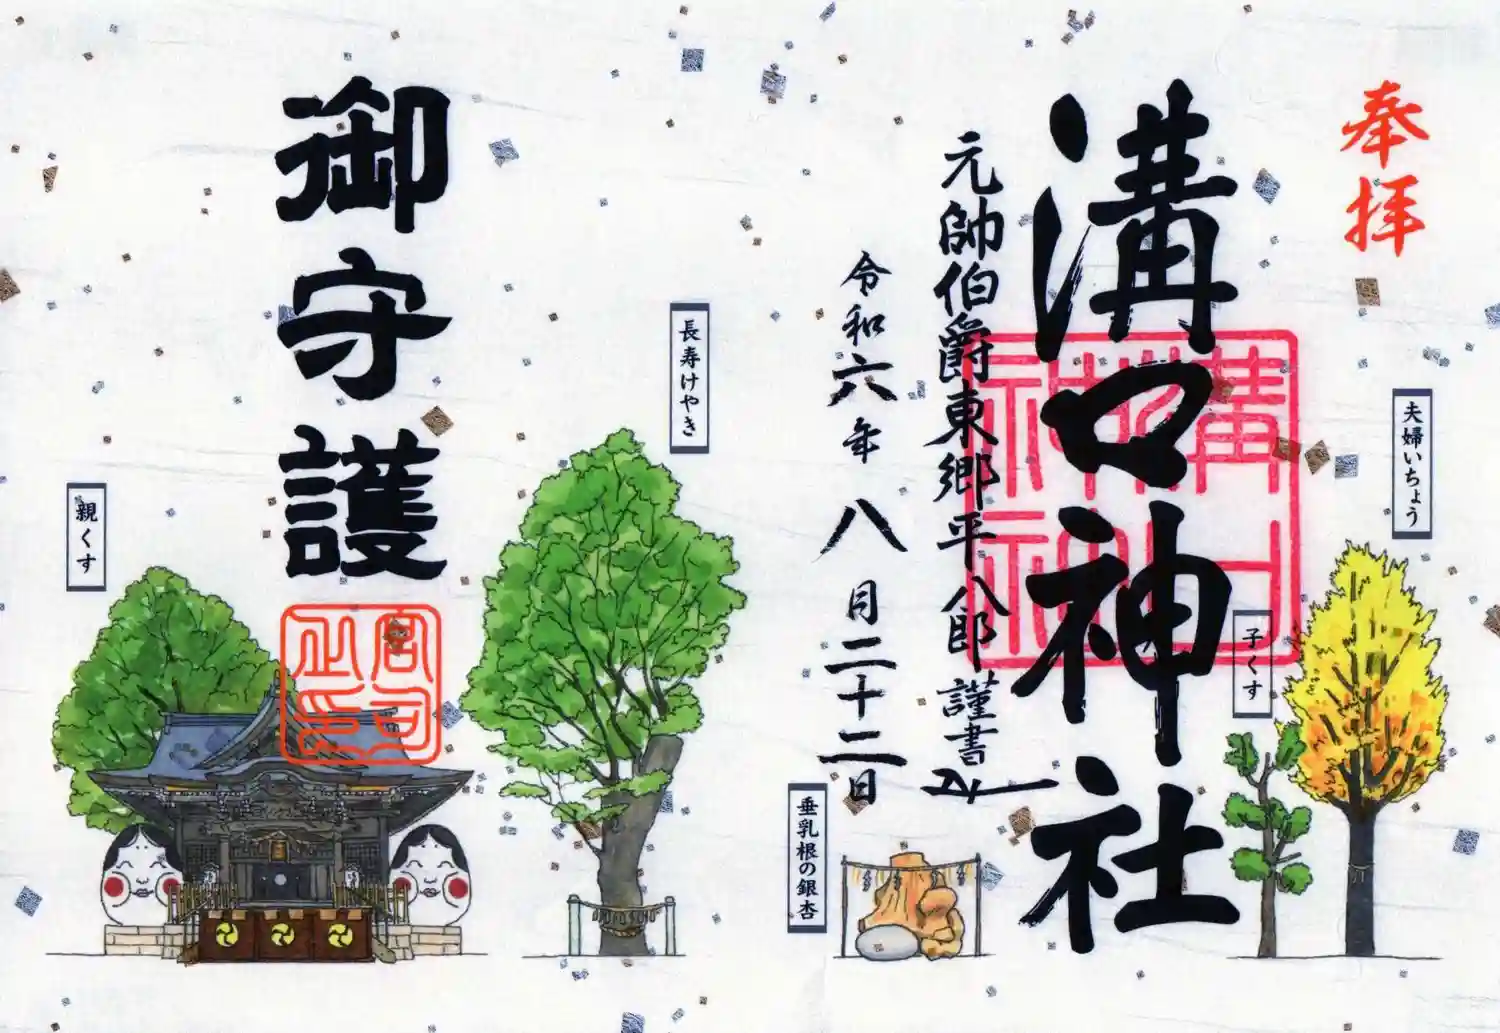 奉拝
夫婦いちょう
子くす
溝口神社
溝口神社
元帥伯爵東郷平八郎 謹書
令和六年八月二十二日
垂乳根の銀杏
長寿けやき
御守護
宮司之印
親くす